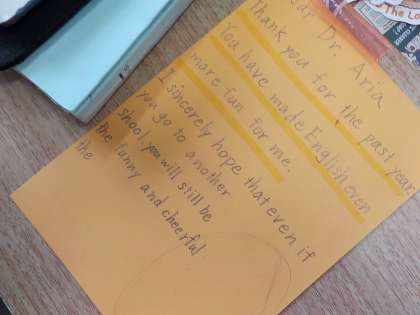 ear Dr. Aria
Thank you for the past year
You have made English even
more fun for me.
I sincerely hope that even if
you go to another
shool, you will still be
the funny and cheerful
the
The La